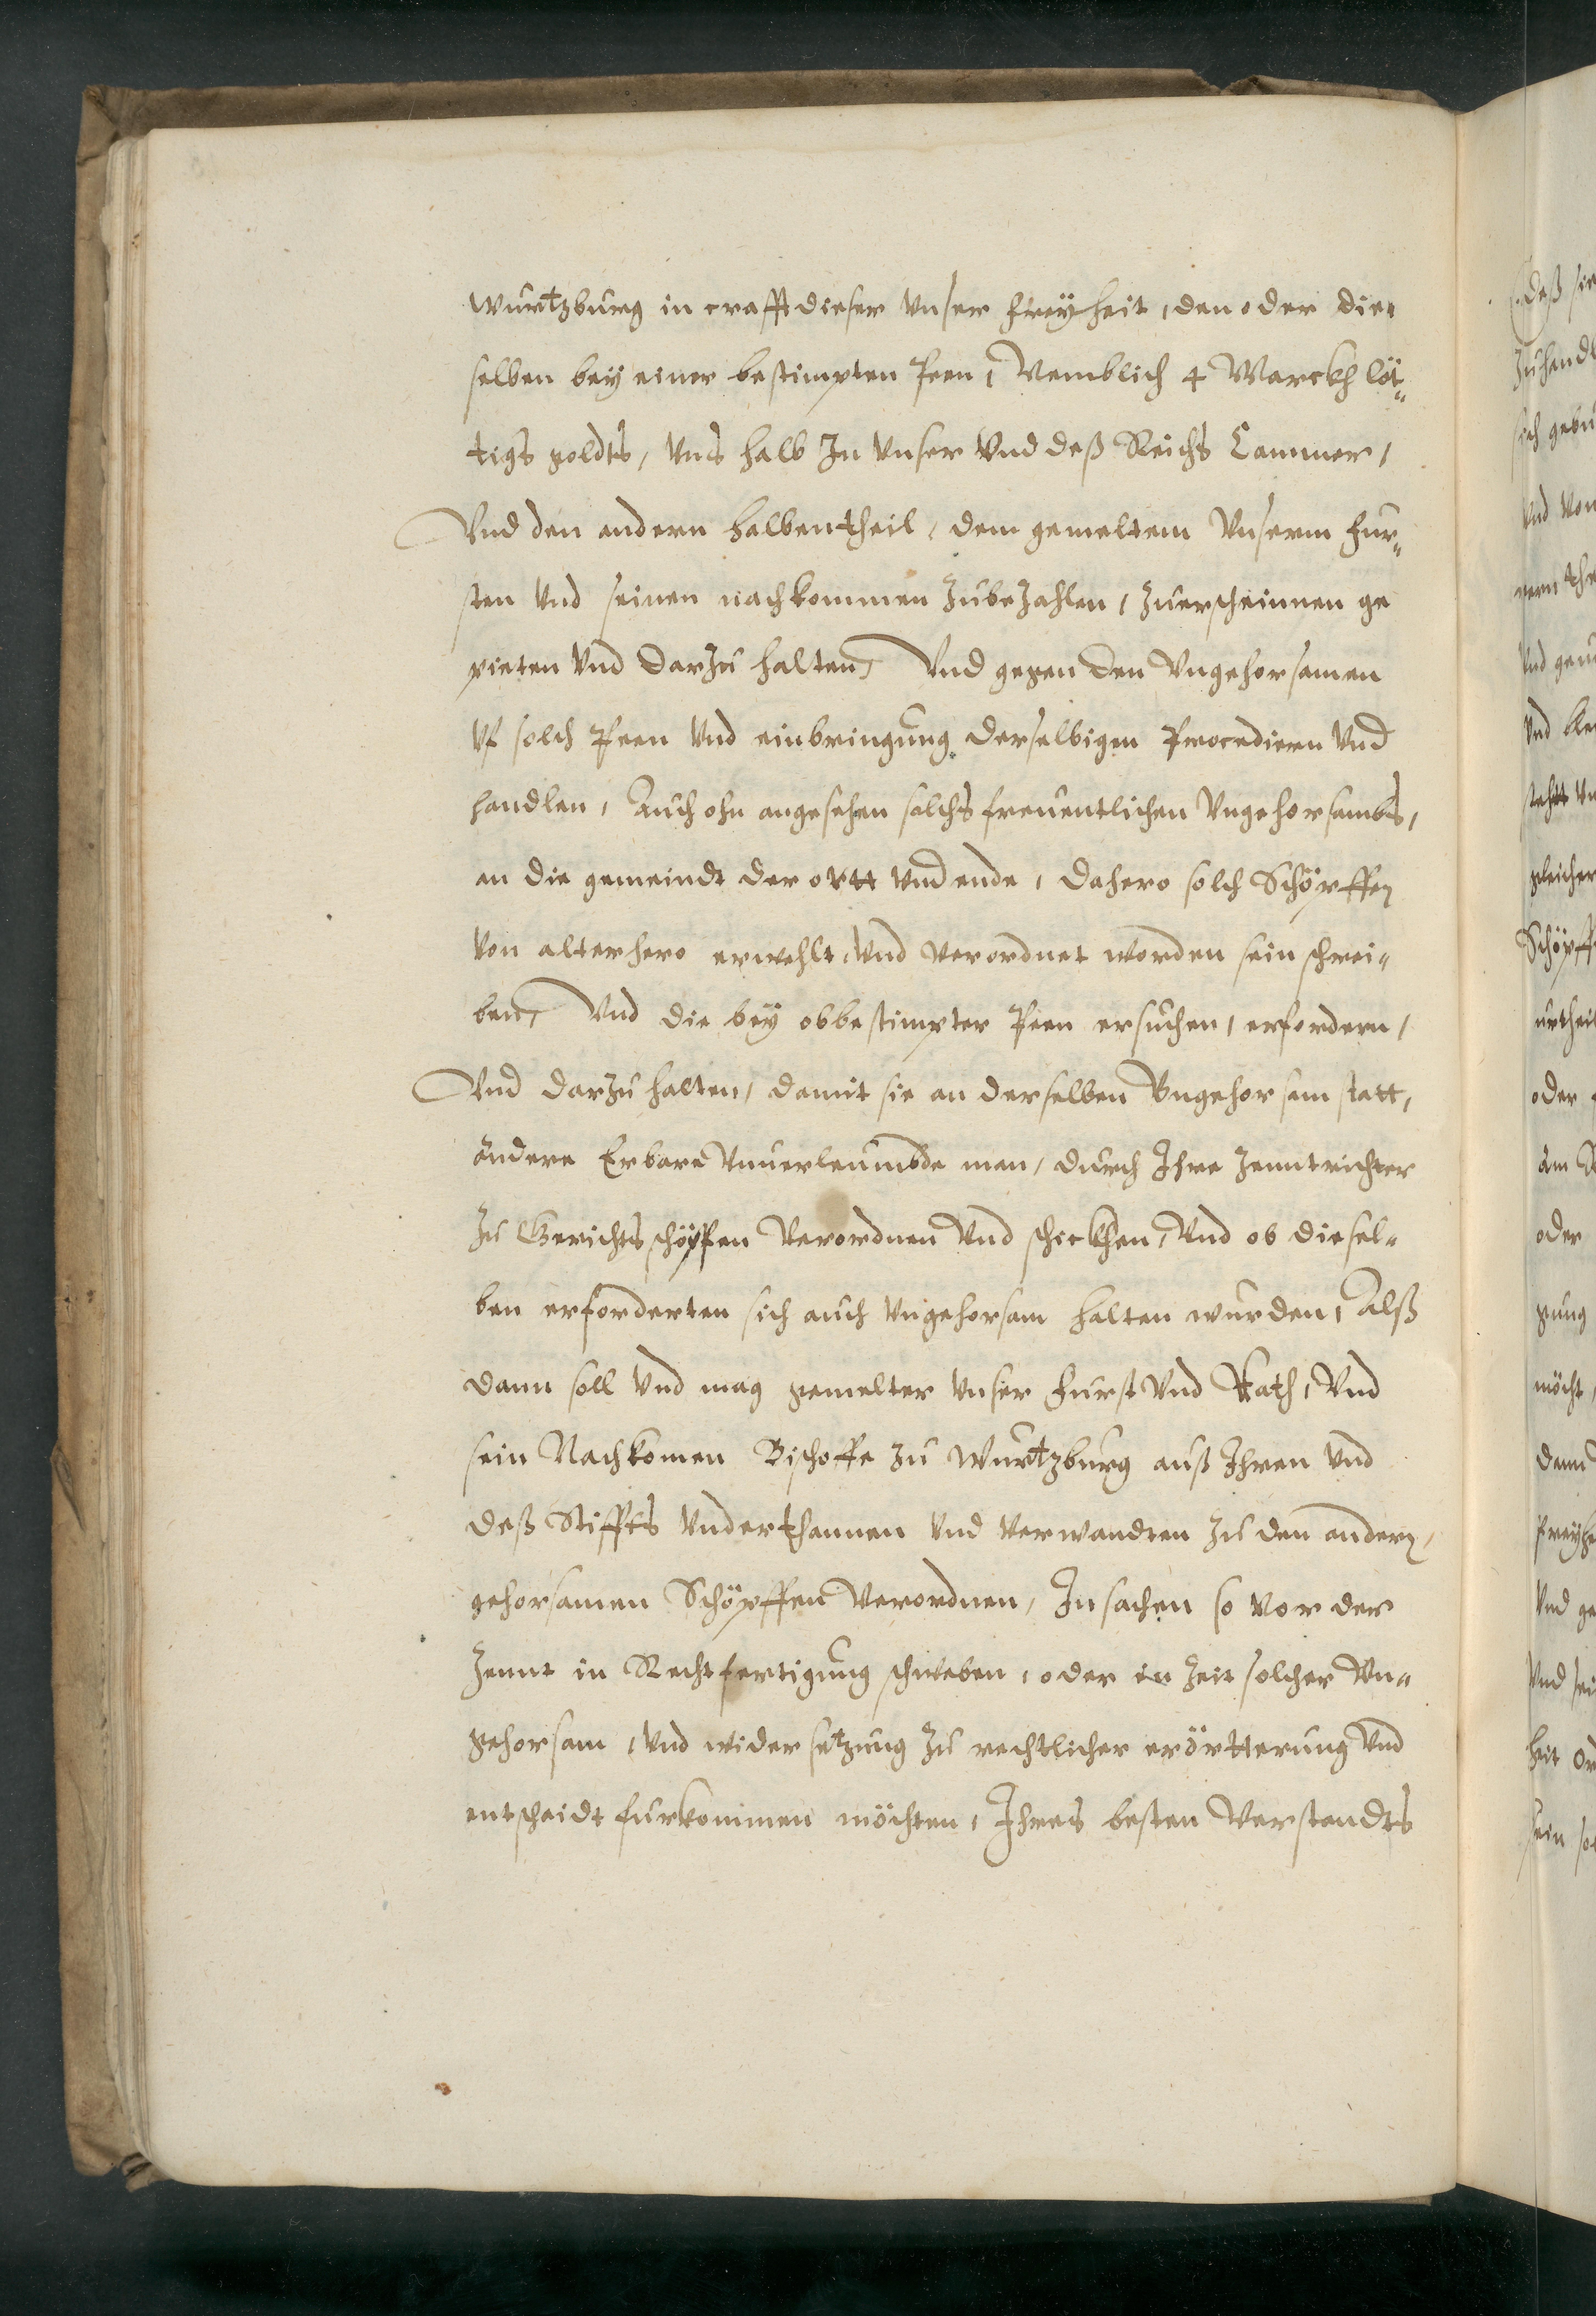 Wurtzburg in crafft dieser vnser freyheit, den oder die-
selben bey einer bestimpten Peen, Nemblich 4 Marckh löt„
tigs goldts, vns halb In vnser vnd deß Reichs Cammer,
Vnd den andern halbentheil, dem gemeltem vnserm fur„
sten vnd seinen nachkommen zubezahlen, zuerscheinnen ge
pieten vnd darzu halten, Vnd gegen den vngehorsamen
vf solch Peen vnd einbringung derselbigen Procediern vnd
handlen, Auch ohn angesehen solchs freuentlichen vngehorsambs,
an die gemeindt der ortt vnd ende, dahero solch Schöpffen
von alterhero erwehlt, vnd verordnet worden sein schrei„
ben, Vnd die bey obbestimpter Peen ersuchen, erfordern,
Vnd darzu halten, damit sie an derselben Vngehorsam statt,
andere Erbare vnuerleumbde man, durch Ihre Zenntrichter
zu Gerichtsschöpfen verordnen vnd schickhen, Vnd ob diesel„
ben erforderten sich auch vngehorsam halten wurden, Alß
dann soll vnd mag gemelter vnser furst vnd Rath, vnd
sein Nachkomen Bischoffe zu Wurtzburg auß Ihren vnd
deß Stiffts vnderthannen vnd verwandten zu den andern,
gehorsamen Schöpffen verordnen, In sachen so vor der
Zennt in Rechtfertigung schweben, oder in Zeit solcher Vn„
gehorsam, vnd widersetzung zu rechtlicher erörtterung vnd
entscheidt furkommen möchten, Ihres besten Verstandts
deß sie
zuhandl
sich gebu
vnd von
gern
vnd
vnd
gleicher
Schöpff
urtheil
oder
am
oder
gung
möcht,
dann
freyhe
Vnd ge
Vnd sei
heit
sein